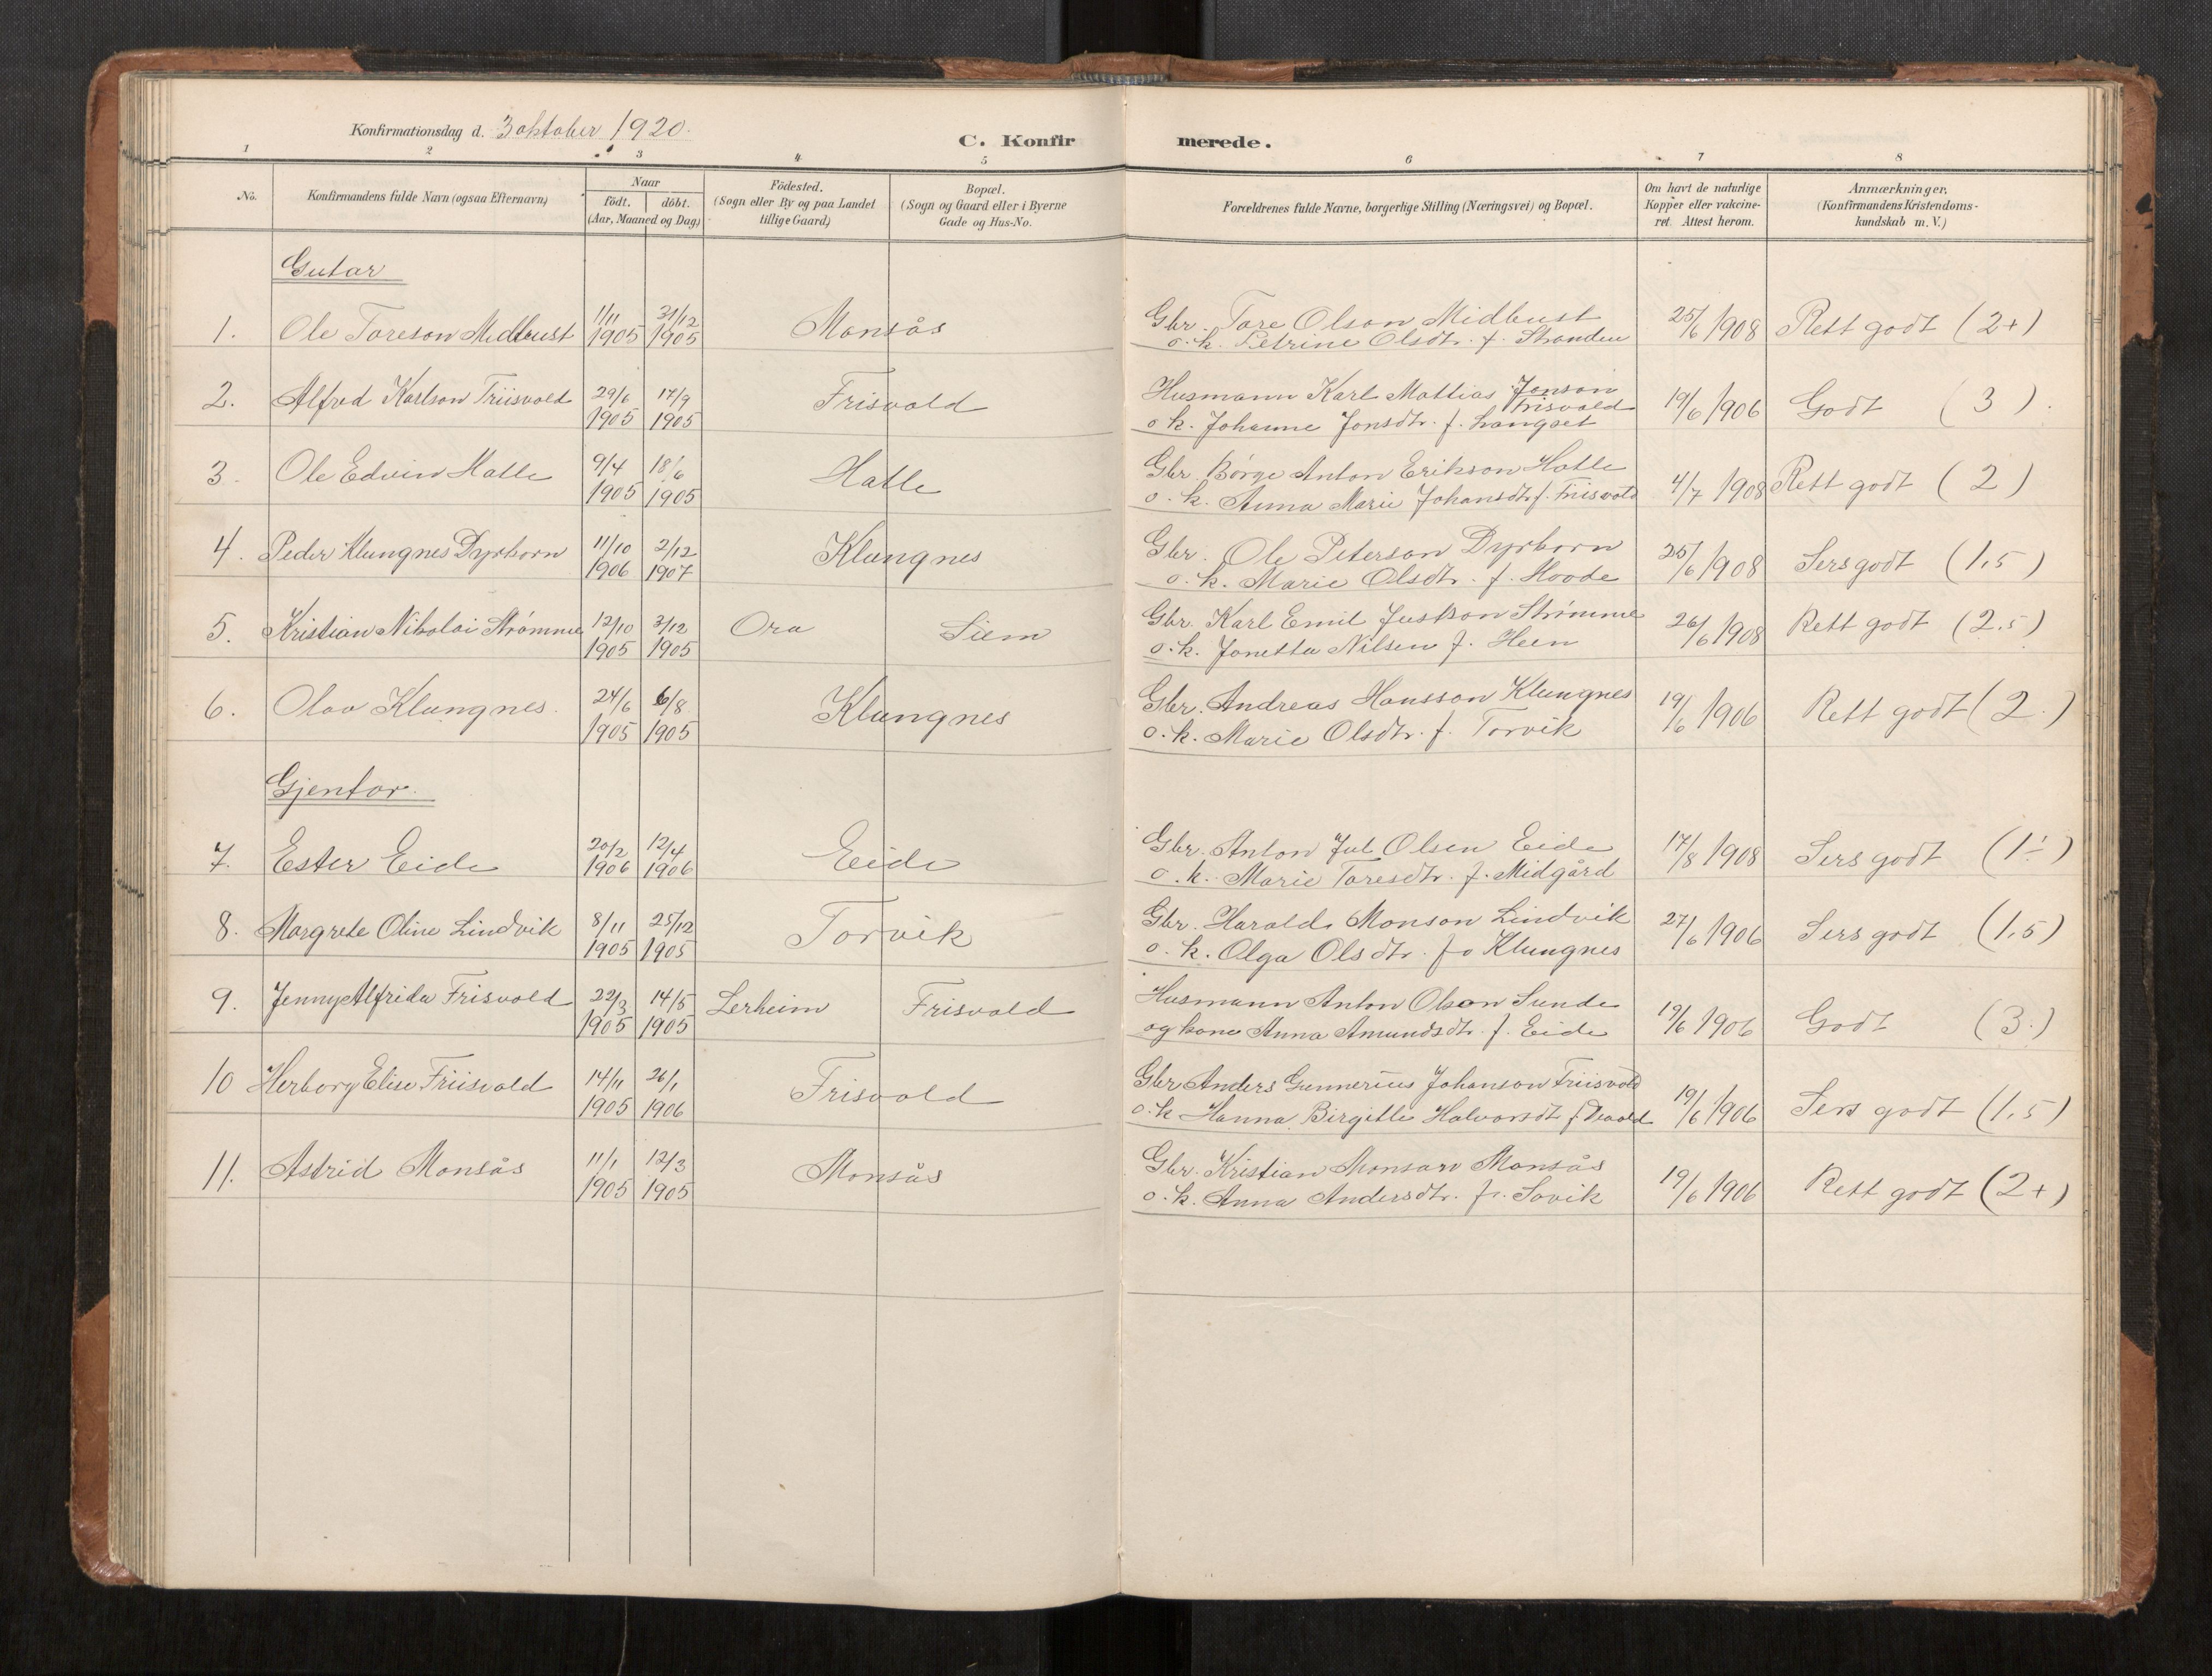 Konfirmationsdag d. 3 oktober 1920.
C. Konfirmerede.
1 2 3 4 5 6 7 8
No. Konfirmandens fulde Navn (ogsaa Efternavn) Naar födt. döbt. (Aar, Maaned og Dag) Födested. (Sogn eller By og paa Landet tillige Gaard) Bopæl. (Sogn og Gaard eller i Byerne Gade og Hus-No. Forældrenes fulde Navne, borgerlige Stilling (Næringsvei) og Bopæl. Om havt de naturlige Kopper eller vakcineret. Attest herom. Anmærkninger. (Konfirmandens Kristendomskundskab m. V.)
Gutar
1. Ole Toreson Midbust 11/11 1905 31/12 1905 Monsås Gbr. Tore Olson Midbust 25/6 1908 Rett godt (2+)
o. k. Petrine Olsdtr. f. Stranden
2. Alfred Karlson Friisvold 29/6 1905 17/9 1905 Frisvold Husmann Karl Mattias Jonson Frisvold 19/6 1906 Godt (3).
o k. Johanne Jonsdtr. f. Langset
3. Ole Edvin Hatle 9/4 1905 18/6 1905 Hatle Gbr. Børge Anton Erikson Hatle 4/7 1908 Rett godt (2)
o. k. Anna Marie Johansdtr. f. Frisvold
4. Peder Klungnes Dyrkorn 11/10 1906 2/12 1907 Klungnes Gbr. Ole Peterson Dyrkorn 25/6 1908 Sers godt (1,5)
o. k. Marie Olsdtr. f. Hovde
5. Kristian Nikolai Strømme 12/10 1905 3/12 1905 Ora Siem Gbr. Karl Emil Justson Strømme 26/6 1908 Rett godt (2.5)
o. k. Jonetta Nilsen f. Heen
6. Olav Klungnes. 24/6 1905 6/8 1905 Klungnes Gbr. Andreas Hansson Klungnes 19/6 1906 Rett godt (2.)
o. k. Marie Olsdtr. f. Torvik
Gjentor.
7. Ester Eide 20/2 1906 12/4 1906 Eide Gbr. Anton Jul Olsen Eide 17/8 1908 Sers godt (1÷)
o. k. Marie Toresdtr. f. Midgård
8. Margrete Oline Lindvik 8/11 1905 25/12 1905 Torvik Gbr. Harald Monson Lindvik 27/6 1906 Sers godt (1,5)
o. k. Olga Olsdtr. fo Klungnes
9. Jenny Alfrida Frisvold 22/3 1905 14/5 1905 Lerheim Frisvold Husmann Anton Olson Sunde 19/6 1906 Godt (3.)
og kone Anna Amundsdtr. f. Eide
10 Herborg Elise Friisvold 14/11 1905 26/1 1906 Frisvold Gbr Anders Gunnerius Johanson Friisvold 19/6 1906 Sers godt (1,5)
o. k Hanna Birgitte Halvorsdt f.
11. Astrid Monsås 11/1 1905 12/3 1905 Monsås Gbr. Kristian Monson Monsås 19/6 1906 Rett godt (2+)
o. k. Anna Andersdtr. f. Sovik